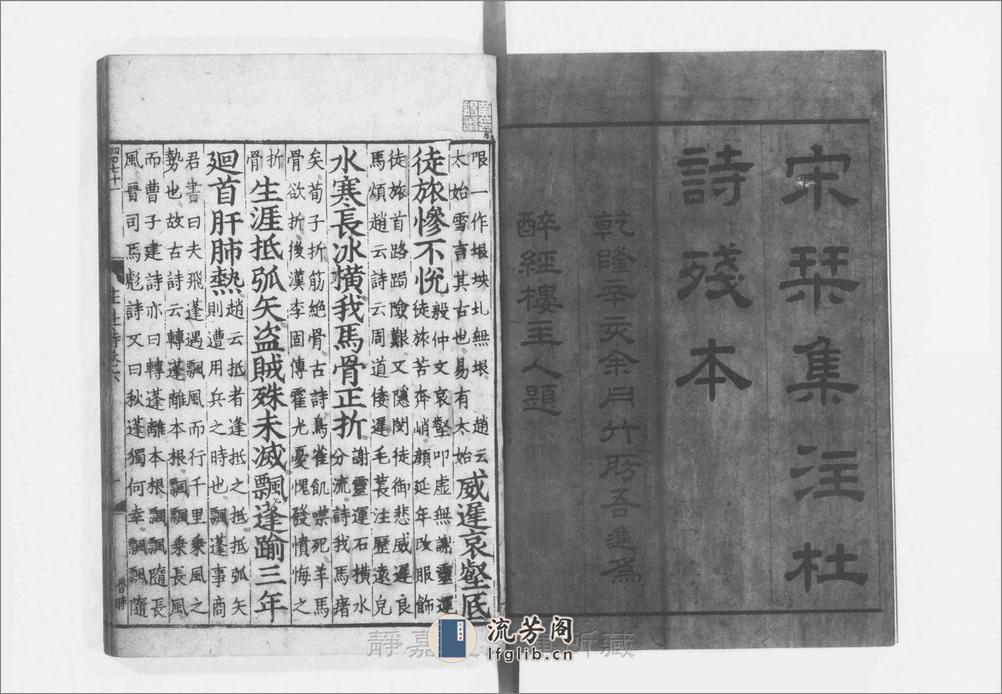 宋栞集注杜
詩殘本
乾隆辛亥余月竹房吾進為
醉經樓主人題
垠一作垠坱圠無垠趙云
太始雪言其古也易有太始
威遲哀壑底
徒旅慘不悅
殷仲文哀壑叩虛無謝靈運
徒旅苦奔峭顏延年改服飾
徒旅首路跼險艱又隱閔徒御悲威遲良
馬煩趙云詩云周道倭遲毛萇注歷遠皃
水寒長冰橫我馬骨正折
謝靈運石橫水
分流詩我馬瘏
矣荀子折筋絕骨古詩鳥雀飢噤死羊馬
骨欲折後漢李固傳霍光憂愧發憤悔之
折
骨
生涯抵弧矢盜賊殊未滅飄蓬踰三年
廻首肝肺熱
趙云抵者逢抵之抵抵弧矢
則遭用兵之時也飄蓬事商
君書曰夫飛蓬遇飄風而行千里乘風之
勢也故古詩云轉蓬離本根飄飄乘長風
而曹子建詩亦曰轉蓬離本根飄飄隨長
風晉司馬彪詩又曰秋蓬獨何幸飄飄隨
注杜詩卷六
流芳阁
lfglib.cn
靜嘉
所藏